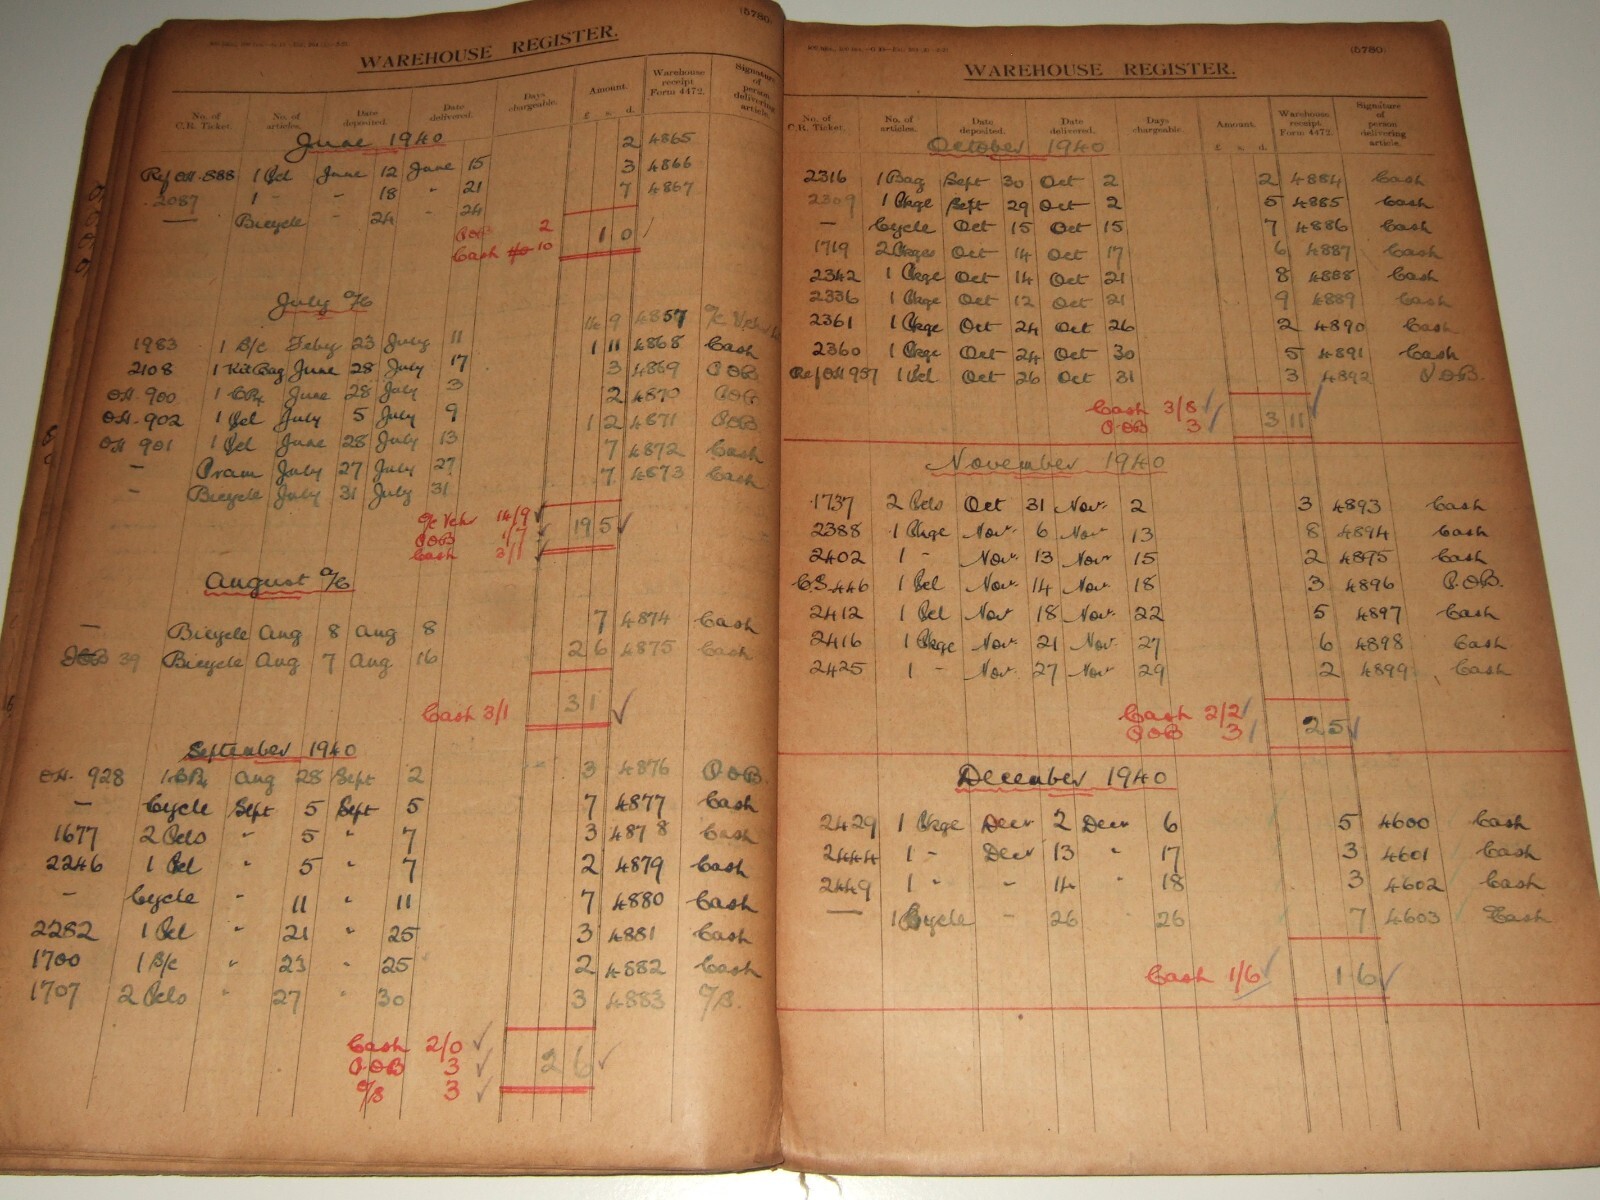 (5780)
WAREHOUSE REGISTER.
No. of C.R. Ticket. No. of articles. Date deposited. Date delivered. Days chargeable. Amount. £ s. d. Warehouse receipt Form 4472. Signature of person delivering article.
June 1940
Ref OH. 888 1 Pcl June 12 June 15 2 4865
2087 1 - - 18 " 21 3 4866
— Bicycle - 24 - 24 7 4867
POB 2
Cash 10 1 0
July a/c
14 9 4857 a/c Vchr
1983 1 B/c Feby 23 July 11 1 11 4868 Cash
2108 1 Kit Bag June 28 July 17 3 4869 POB
OH. 900 1 June 28 July 3 2 4870 POB
OH. 902 1 Pcl July 5 July 9 1 2 4871 POB
OH 901 1 Pcl June 28 July 13 7 4872 Cash
- Pram July 27 July 27 7 4873 Cash
- Bicycle July 31 July 31
a/c Vchr 14/9
POB 1/7 19 5
Cash 3/1
August a/c
— Bicycle Aug 8 Aug 8 7 4874 Cash
39 Bicycle Aug 7 Aug 16 2 6 4875 Cash
Cash 3/1 3 1
September 1940
OH. 928 1 Aug 28 Sept 2 3 4876 POB.
- Cycle Sept 5 Sept 5 7 4877 Cash
1677 2 Pcls " 5 " 7 3 4878 Cash
2246 1 Pcl " 5 " 7 2 4879 Cash
- Cycle " 11 " 11 7 4880 Cash
2282 1 Pcl " 21 " 25 3 4881 Cash
1700 1 B/c " 23 " 25 2 4882 Cash
1707 2 Pcls " 27 " 30 3 4883 O/S.
Cash 2/0
POB 3 2 6
O/S 3
(5780)
WAREHOUSE REGISTER.
No. of C.R. Ticket. No. of articles. Date deposited. Date delivered. Days chargeable. Amount. £ s. d. Warehouse receipt Form 4472. Signature of person delivering article.
October 1940
2316 1 Bag Sept 30 Oct 2 2 4884 Cash
2309 1 Pkge Sept 29 Oct 2 5 4885 Cash
— Cycle Oct 15 Oct 15 7 4886 Cash
1719 2 Pkges Oct 14 Oct 17 6 4887 Cash
2342 1 Pkge Oct 14 Oct 21 8 4888 Cash
2336 1 Pkge Oct 12 Oct 21 9 4889 Cash
2361 1 Pkge Oct 24 Oct 26 2 4890 Cash
2360 1 Pkge Oct 24 Oct 30 5 4891 Cash
Ref OH 937 1 Pcl. Oct 26 Oct 31 3 4892 POB.
Cash 3/8
POB 3 3 11
November 1940
1737 2 Pcls Oct 31 Nov. 2 3 4893 Cash
2388 1 Pkge Nov. 6 Nov 13 8 4894 Cash
2402 1 - Nov. 13 Nov 15 2 4895 Cash
CS 446 1 Pcl Nov 14 Nov 18 3 4896 P.O.B.
2412 1 Pcl Nov 18 Nov. 22 5 4897 Cash
2416 1 Pkge Nov. 21 Nov. 27 6 4898 Cash
2425 1 - Nov. 27 Nov 29 2 4899 Cash
Cash 2/2
POB 3 2 5
December 1940
2429 1 Pkge Decr 2 Decr 6 5 4600 Cash
2444 1 - Decr 13 " 17 3 4601 Cash
2449 1 " - 14 " 18 3 4602 Cash
— 1 Bycycle - 26 " 26 7 4603 Cash
Cash 1/6 1 6